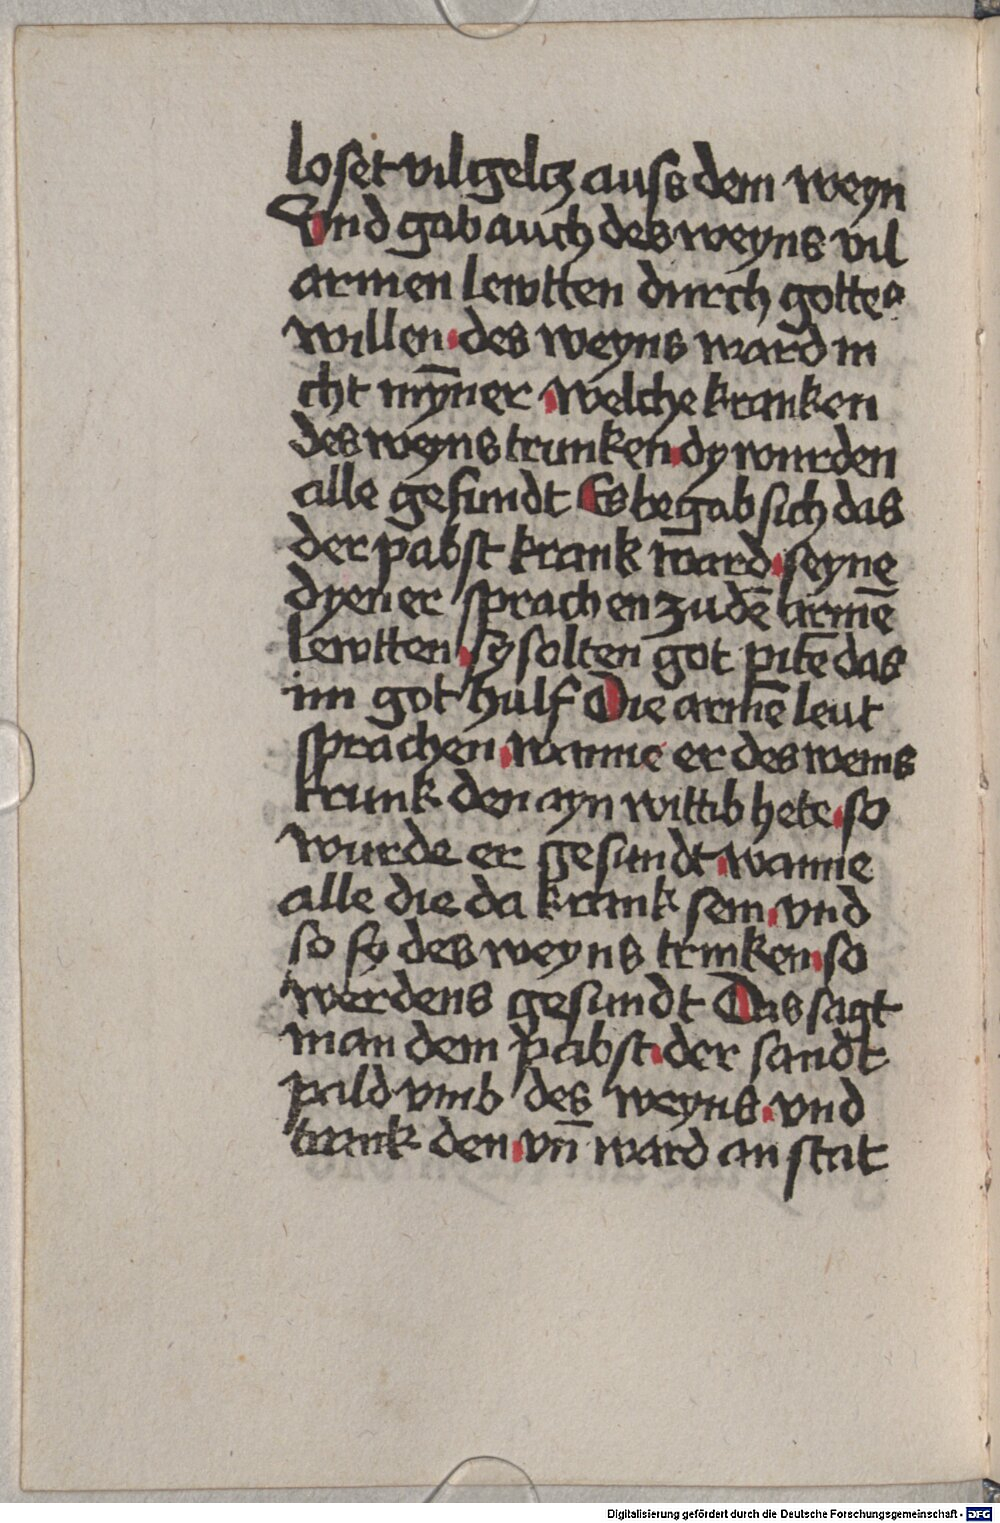 loset vil geltz auss dem weyn
Vnd gab auch des weyns vil
armen lewtten durch gottes
willen · des weyns ward ni
cht myn̄er · welche kranken
des weyns trunken · dy wurden
alle gesundt Es begab sich das
der pabst krank ward · seyne
dyener sprachen zu dē armē
lewtten · sy solten got pitē das
im got hulf Die armē leut
sprachen · wanne er des weins
trunk den ayn wittib hete · so
wurde er gesundt · wanne
alle die da krank sein · vnd
so sy des weyns trinken · so
werdens gesundt Das sagt
man dem pabst · der sandt
pald vmb des weyns · vnd
trank den · vn̄ ward an stat
Digitalisierung gefördert durch die Deutsche Forschungsgemeinschaft - DFG